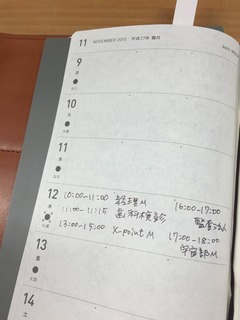 11 NOVEMBER 2015 平成27年 霜月
9
月
10
火
11
水
12
木
10:00-11:00 経理M
11:00-11:15 歯科検診
13:00-15:00 X-point M
16:00-17:00
監査法人
17:00-18:00
宇宙部M
13
金
14
土